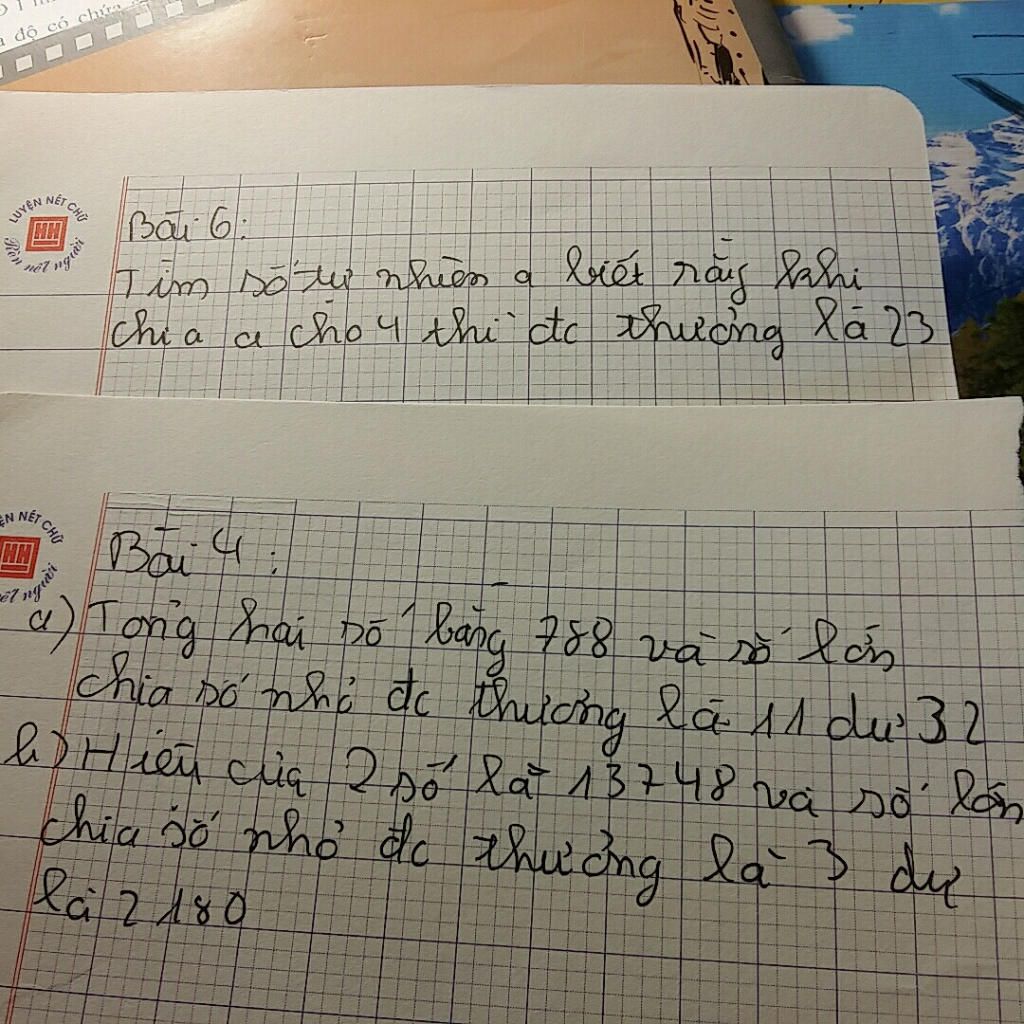 a độ có chứa
LUYỆN NÉT CHỮ
HH
Rèn nết người
Bài 6:
Tìm số tự nhiên a biết rằng khi
chia a cho 4 thì đc thương là 23
ỆN NÉT CHỮ
HH
nết người
Bài 4:
a) Tổng hai số bằng 788 và số lớn
chia số nhỏ đc thương là 11 dư 32
b) Hiệu của 2 số là 13748 và số lớn
chia số nhỏ đc thương là 3 dư
là 2180